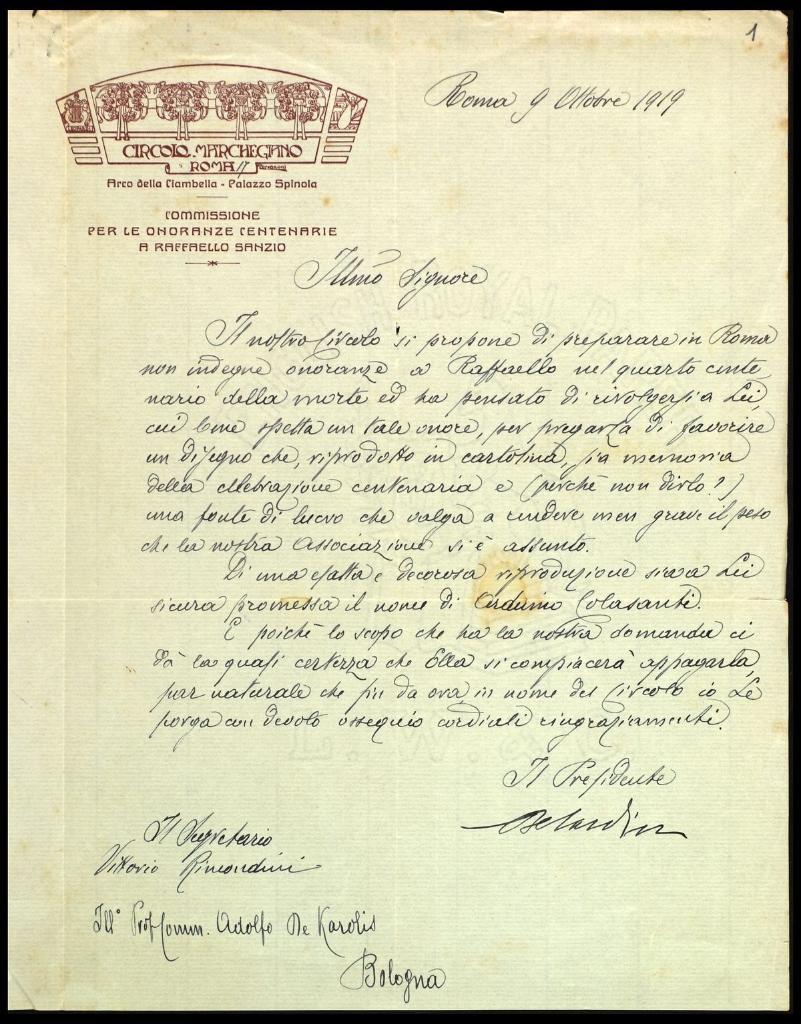 1
Roma 9 Ottobre 1919
CIRCOLO MARCHEGIANO
ROMA 17
Arco della Ciambella - Palazzo Spinola
COMMISSIONE
PER LE ONORANZE CENTENARIE
A RAFFAELLO SANZIO
Illmo Signore
Il nostro Circolo si propone di preparare in Roma
non indegne onoranze a Raffaello nel quarto cente
nario della morte ed ha pensato di rivolgersi a Lei,
cui bene spetta un tale onore, per pregarla di favorire
un disegno che, riprodotto in cartolina, sia memoria
della celebrazione centenaria e (perchè non dirlo?)
una fonte di lucro che valga a rendere men grave il peso
che la nostra Associazione si è assunto.
Di una esatta e decorosa riproduzione sia a Lei
sicura promessa il nome di Arduino Colasanti.
E poichè lo scopo che ha la nostra domanda ci
dà la quasi certezza che Ella si compiacerà appagarla,
par naturale che fin da ora, in nome del Circolo io Le
porga con devoto ossequio cordiali ringraziamenti.
Il Presidente
Il Segretario
Vittorio Rimondini
Ill° Prof Comm. Adolfo De Karolis
Bologna